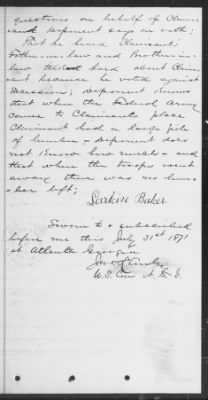 questions on behalf of Claim-
ant Deponent says on oath:
That he heard Claimants
Father-in-law and Brother-in-
law talked hard about Claim-
ant because he voted against
Secession; Deponent knows
that when the Federal Army
came to Claimants place
Claimant had a large pile
of lumber & deponent does
not know how much - and
that when the troops went
away there was no lum-
ber left;
Larkin Baker
Sworn to & subscribed
before me this July 21st 1871
at Atlanta Georgia
U.S. Com